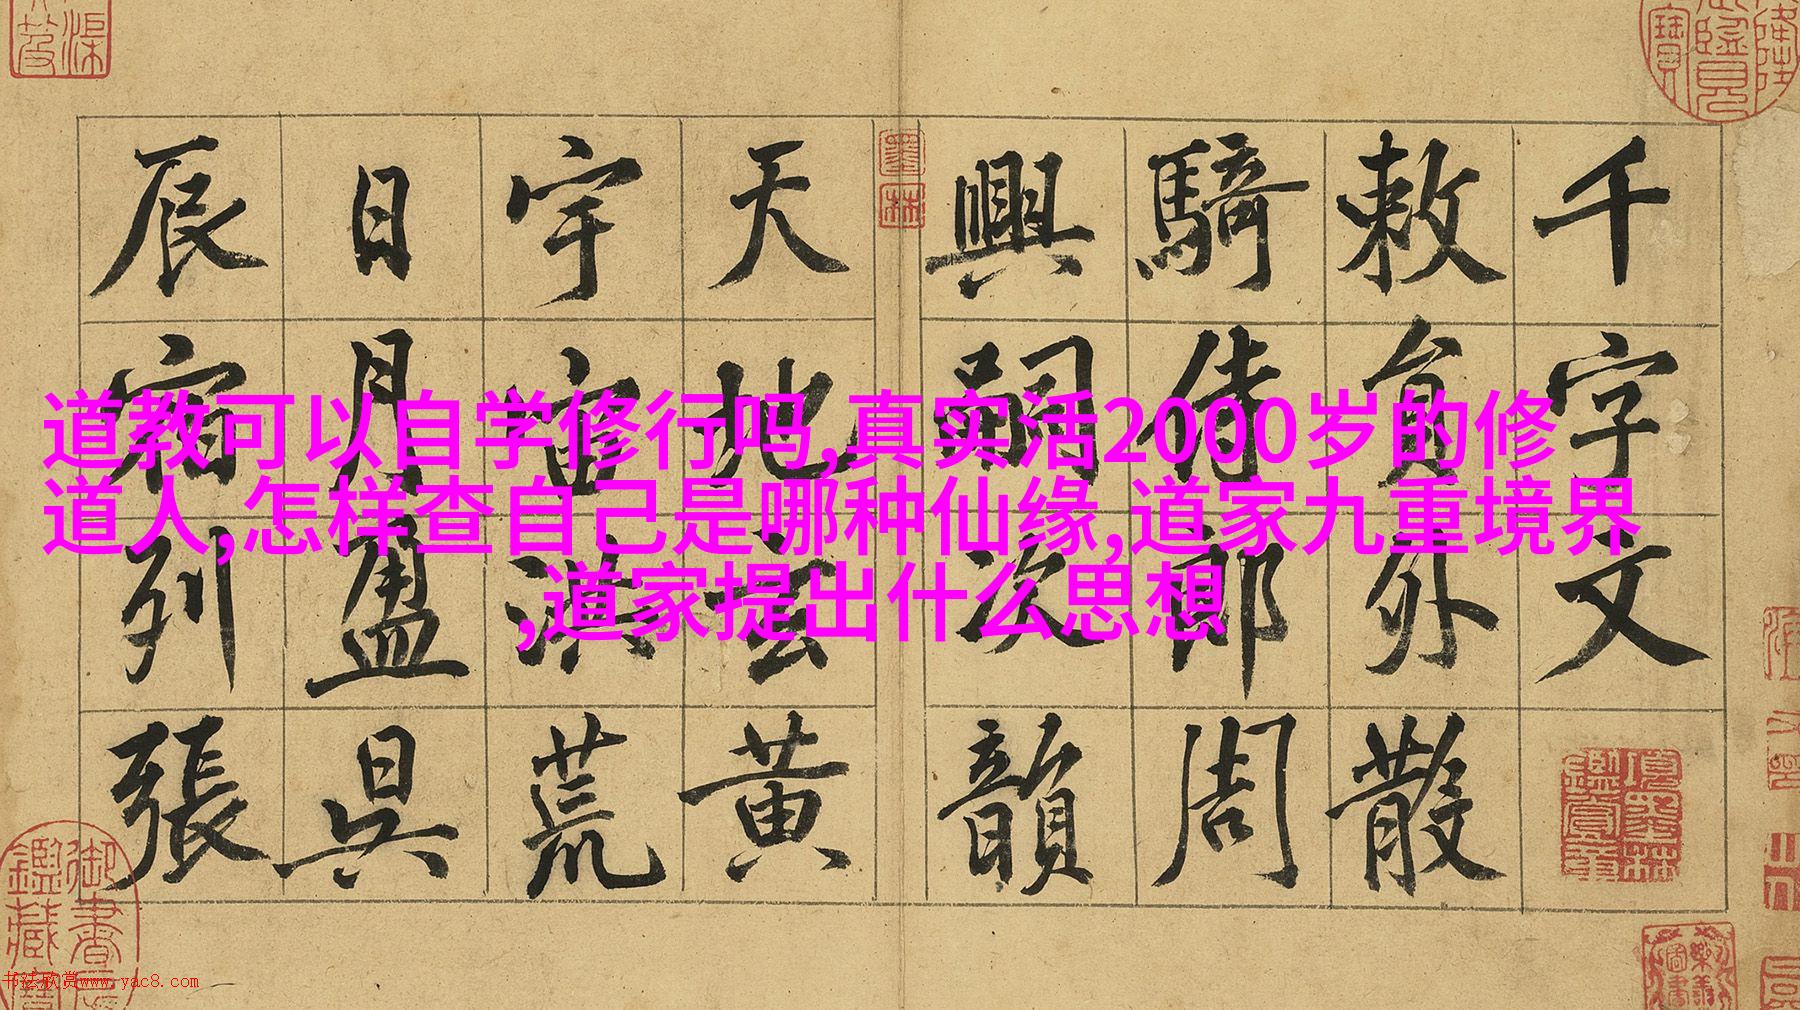 道教可以自学修行吗,真实活2000岁的修
道人,怎样查自己是哪种仙缘,道家九重境界
,道家提出什么思想
千字文
敕員外散
騎侍郎周
興嗣次韻
天地玄黃
宇宙洪荒
日月盈昃
辰宿列張
墨林
項墨林鑑賞章
书法欣赏www.yac8.com